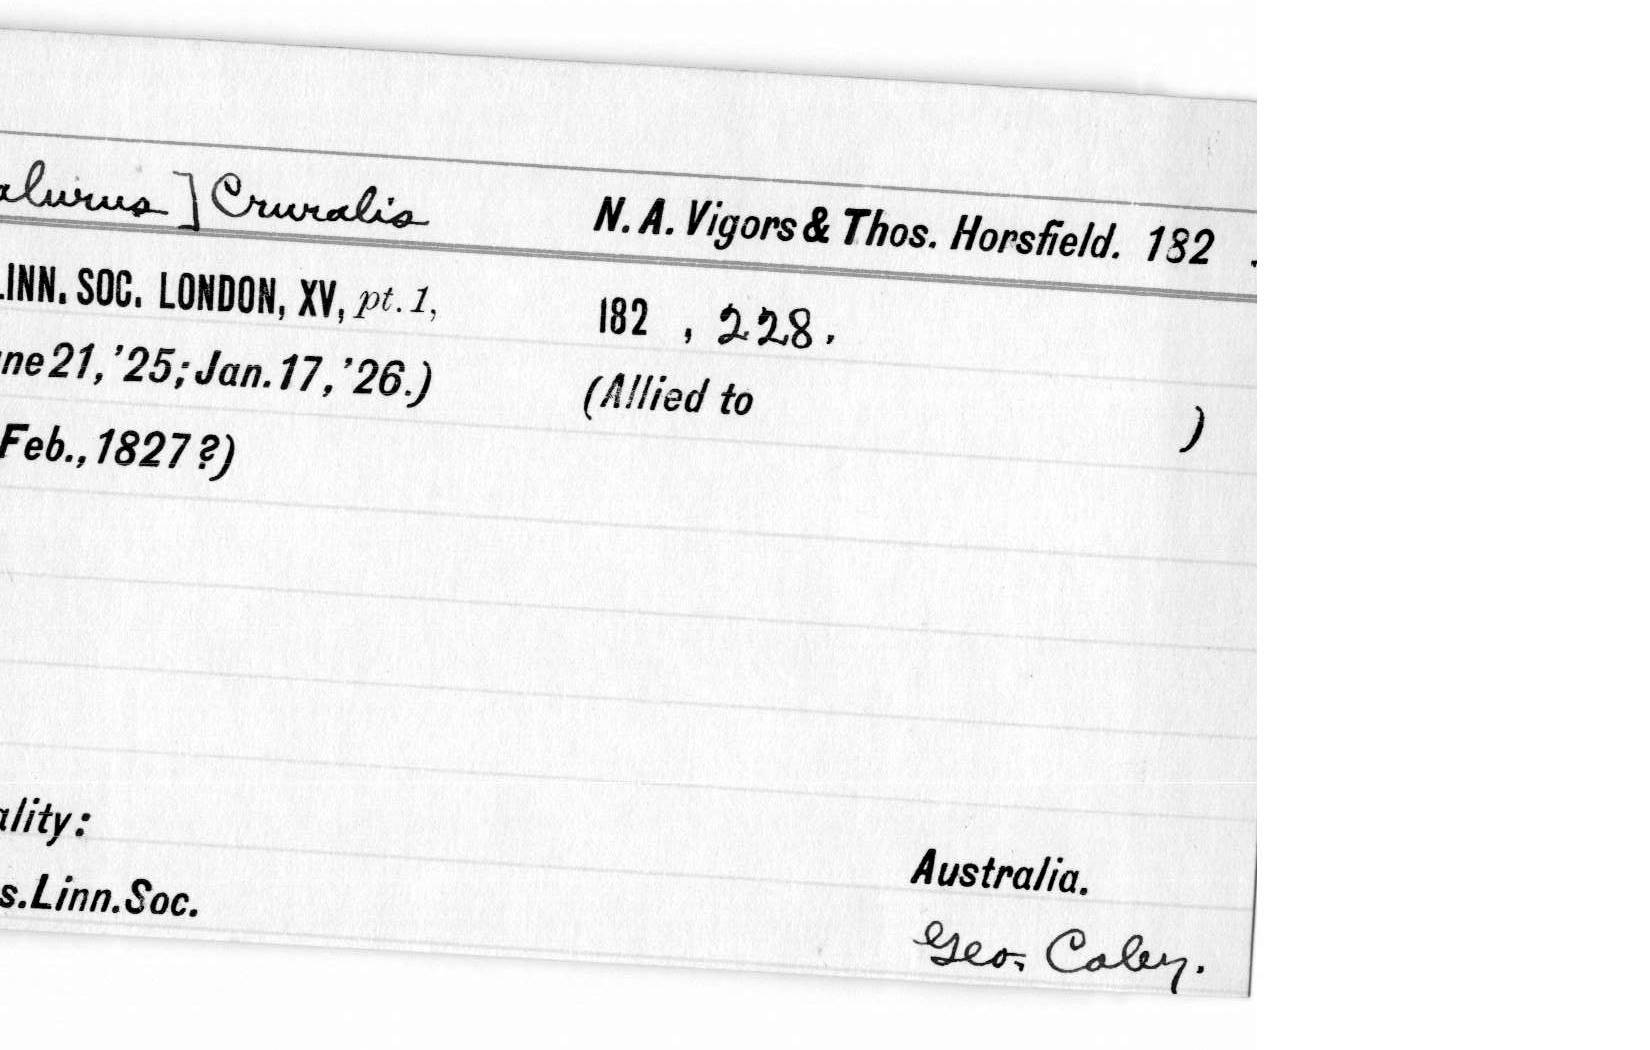 alurus] Cruralis N. A. Vigors & Thos. Horsfield. 182 .
LINN. SOC. LONDON, XV, pt. 1, 182 , 228.
ne 21, '25; Jan. 17, '26.) (Allied to )
Feb., 1827?)
ality:
Australia.
s. Linn. Soc.
Geo. Caley.